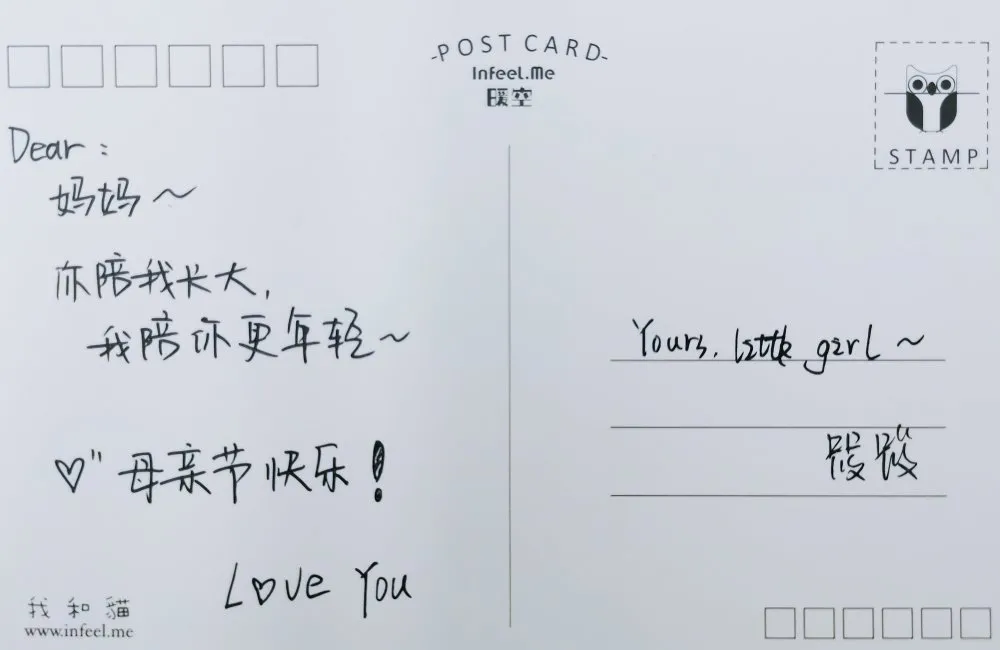 POST CARD
InFeel.Me
暖空
STAMP
Dear:
妈妈~
你陪我长大,
我陪你更年轻~
♡" 母亲节快乐!
Love You
我和貓
www.infeel.me
Yours, little girl~